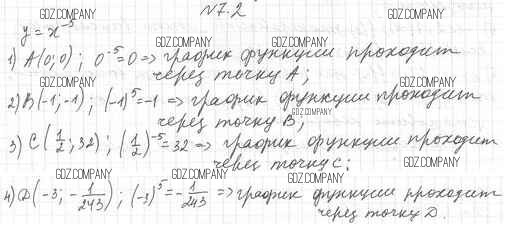 N 7.2
GDZ.COMPANY
y = x^-5
GDZ.COMPANY GDZ.COMPANY
1) A(0; 0) ; 0^-5 = 0 => график функции проходит
через точку A;
GDZ.COMPANY GDZ.COMPANY
2) B(-1; -1) ; (-1)^5 = -1 => график функции проходит
через точку B;
GDZ.COMPANY
3) C(1/2; 32) ; (1/2)^-5 = 32 => график функции проходит
через точку C;
GDZ.COMPANY GDZ.COMPANY GDZ.COMPANY
4) D(-3; -1/243) ; (-3)^5 = -1/243 => график функции проходит
через точку D.